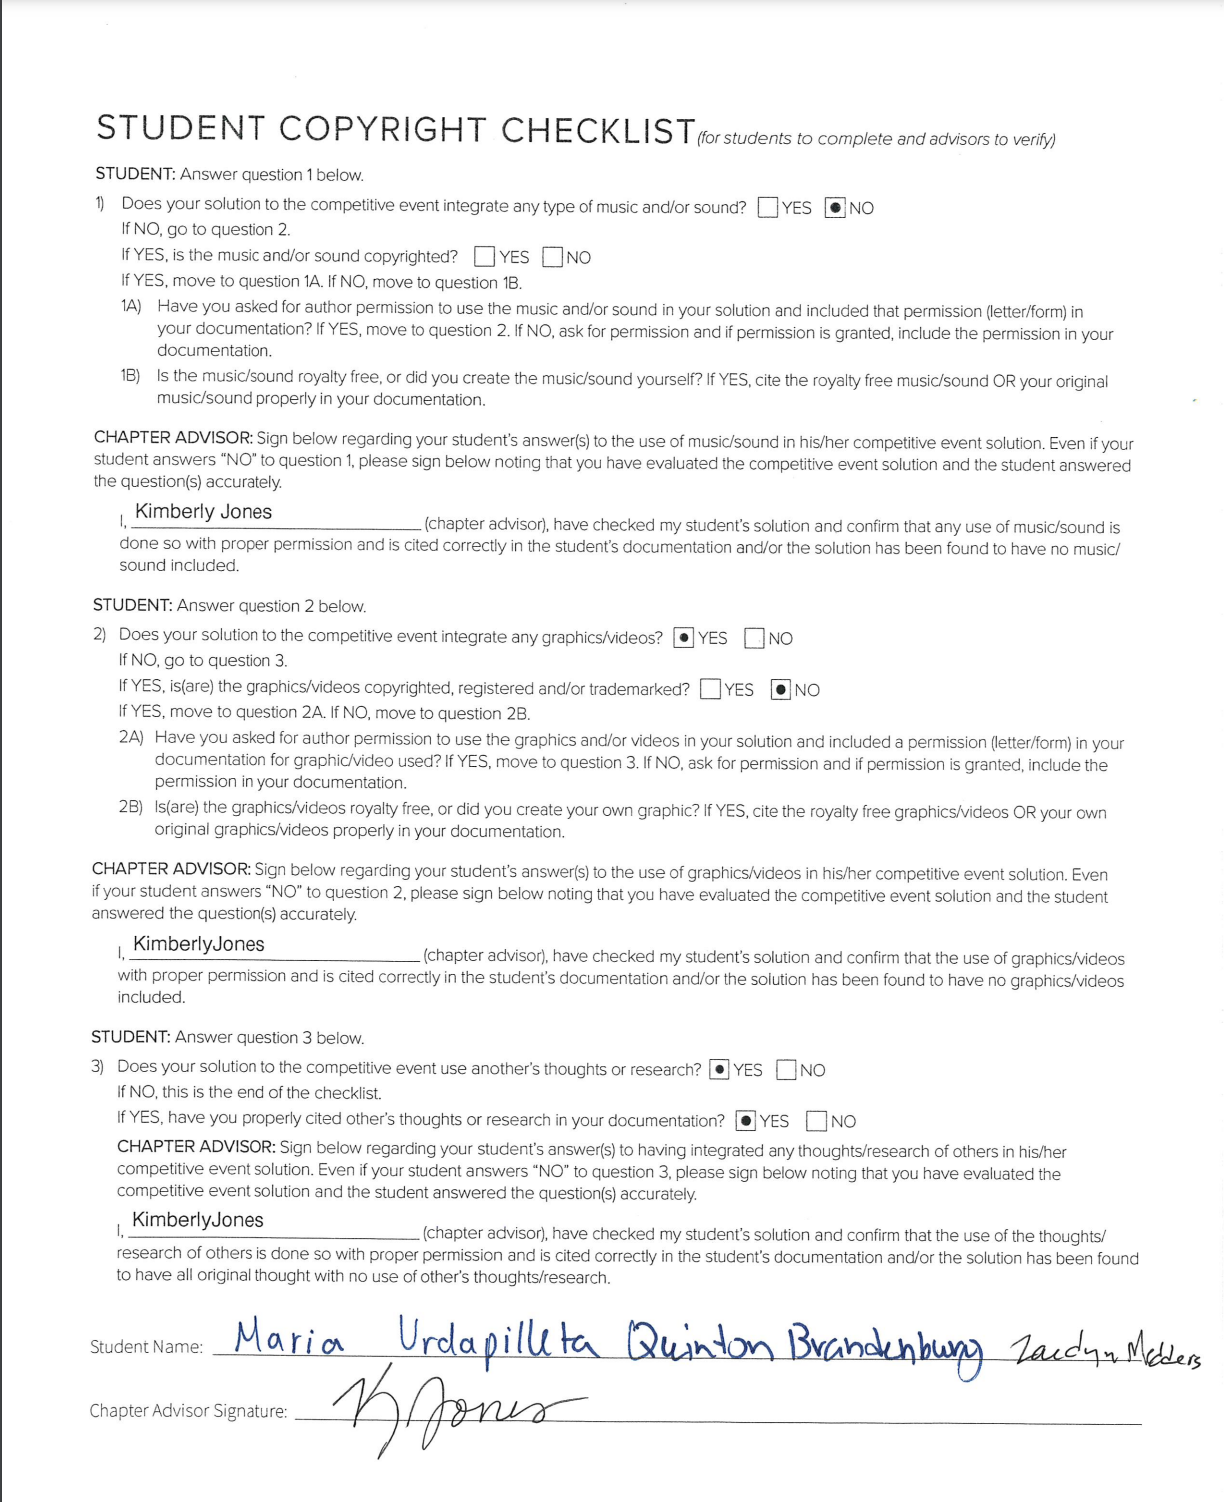 STUDENT COPYRIGHT CHECKLIST (for students to complete and advisors to verify)
STUDENT: Answer question 1 below.
1) Does your solution to the competitive event integrate any type of music and/or sound? YES NO
If NO, go to question 2.
If YES, is the music and/or sound copyrighted? YES NO
If YES, move to question 1A. If NO, move to question 1B.
1A) Have you asked for author permission to use the music and/or sound in your solution and included that permission (letter/form) in
your documentation? If YES, move to question 2. If NO, ask for permission and if permission is granted, include the permission in your
documentation.
1B) Is the music/sound royalty free, or did you create the music/sound yourself? If YES, cite the royalty free music/sound OR your original
music/sound properly in your documentation.
CHAPTER ADVISOR: Sign below regarding your student's answer(s) to the use of music/sound in his/her competitive event solution. Even if your
student answers "NO" to question 1, please sign below noting that you have evaluated the competitive event solution and the student answered
the question(s) accurately.
I, Kimberly Jones (chapter advisor), have checked my student's solution and confirm that any use of music/sound is
done so with proper permission and is cited correctly in the student's documentation and/or the solution has been found to have no music/
sound included.
STUDENT: Answer question 2 below.
2) Does your solution to the competitive event integrate any graphics/videos? YES NO
If NO, go to question 3.
If YES, is(are) the graphics/videos copyrighted, registered and/or trademarked? YES NO
If YES, move to question 2A. If NO, move to question 2B.
2A) Have you asked for author permission to use the graphics and/or videos in your solution and included a permission (letter/form) in your
documentation for graphic/video used? If YES, move to question 3. If NO, ask for permission and if permission is granted, include the
permission in your documentation.
2B) Is(are) the graphics/videos royalty free, or did you create your own graphic? If YES, cite the royalty free graphics/videos OR your own
original graphics/videos properly in your documentation.
CHAPTER ADVISOR: Sign below regarding your student's answer(s) to the use of graphics/videos in his/her competitive event solution. Even
if your student answers "NO" to question 2, please sign below noting that you have evaluated the competitive event solution and the student
answered the question(s) accurately.
I, KimberlyJones (chapter advisor), have checked my student's solution and confirm that the use of graphics/videos
with proper permission and is cited correctly in the student's documentation and/or the solution has been found to have no graphics/videos
included.
STUDENT: Answer question 3 below.
3) Does your solution to the competitive event use another's thoughts or research? YES NO
If NO, this is the end of the checklist.
If YES, have you properly cited other's thoughts or research in your documentation? YES NO
CHAPTER ADVISOR: Sign below regarding your student's answer(s) to having integrated any thoughts/research of others in his/her
competitive event solution. Even if your student answers "NO" to question 3, please sign below noting that you have evaluated the
competitive event solution and the student answered the question(s) accurately.
I, KimberlyJones (chapter advisor), have checked my student's solution and confirm that the use of the thoughts/
research of others is done so with proper permission and is cited correctly in the student's documentation and/or the solution has been found
to have all original thought with no use of other's thoughts/research.
Student Name: Maria Urdapilleta Quinton Brandenburg Zaedyn Medders
Chapter Advisor Signature: K Jones